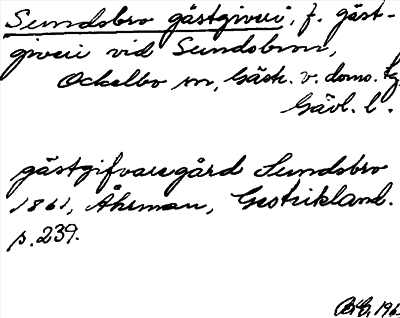 Sundsbro gästgiveri, f. gäst-
giveri vid Sundsbron,
Ockelbo sn, Gästr. v. doms. tg.
Gävl. l.
gästgifvaregård Sundsbro
1861, Åhrman, Gestrikland.
p. 239.
196